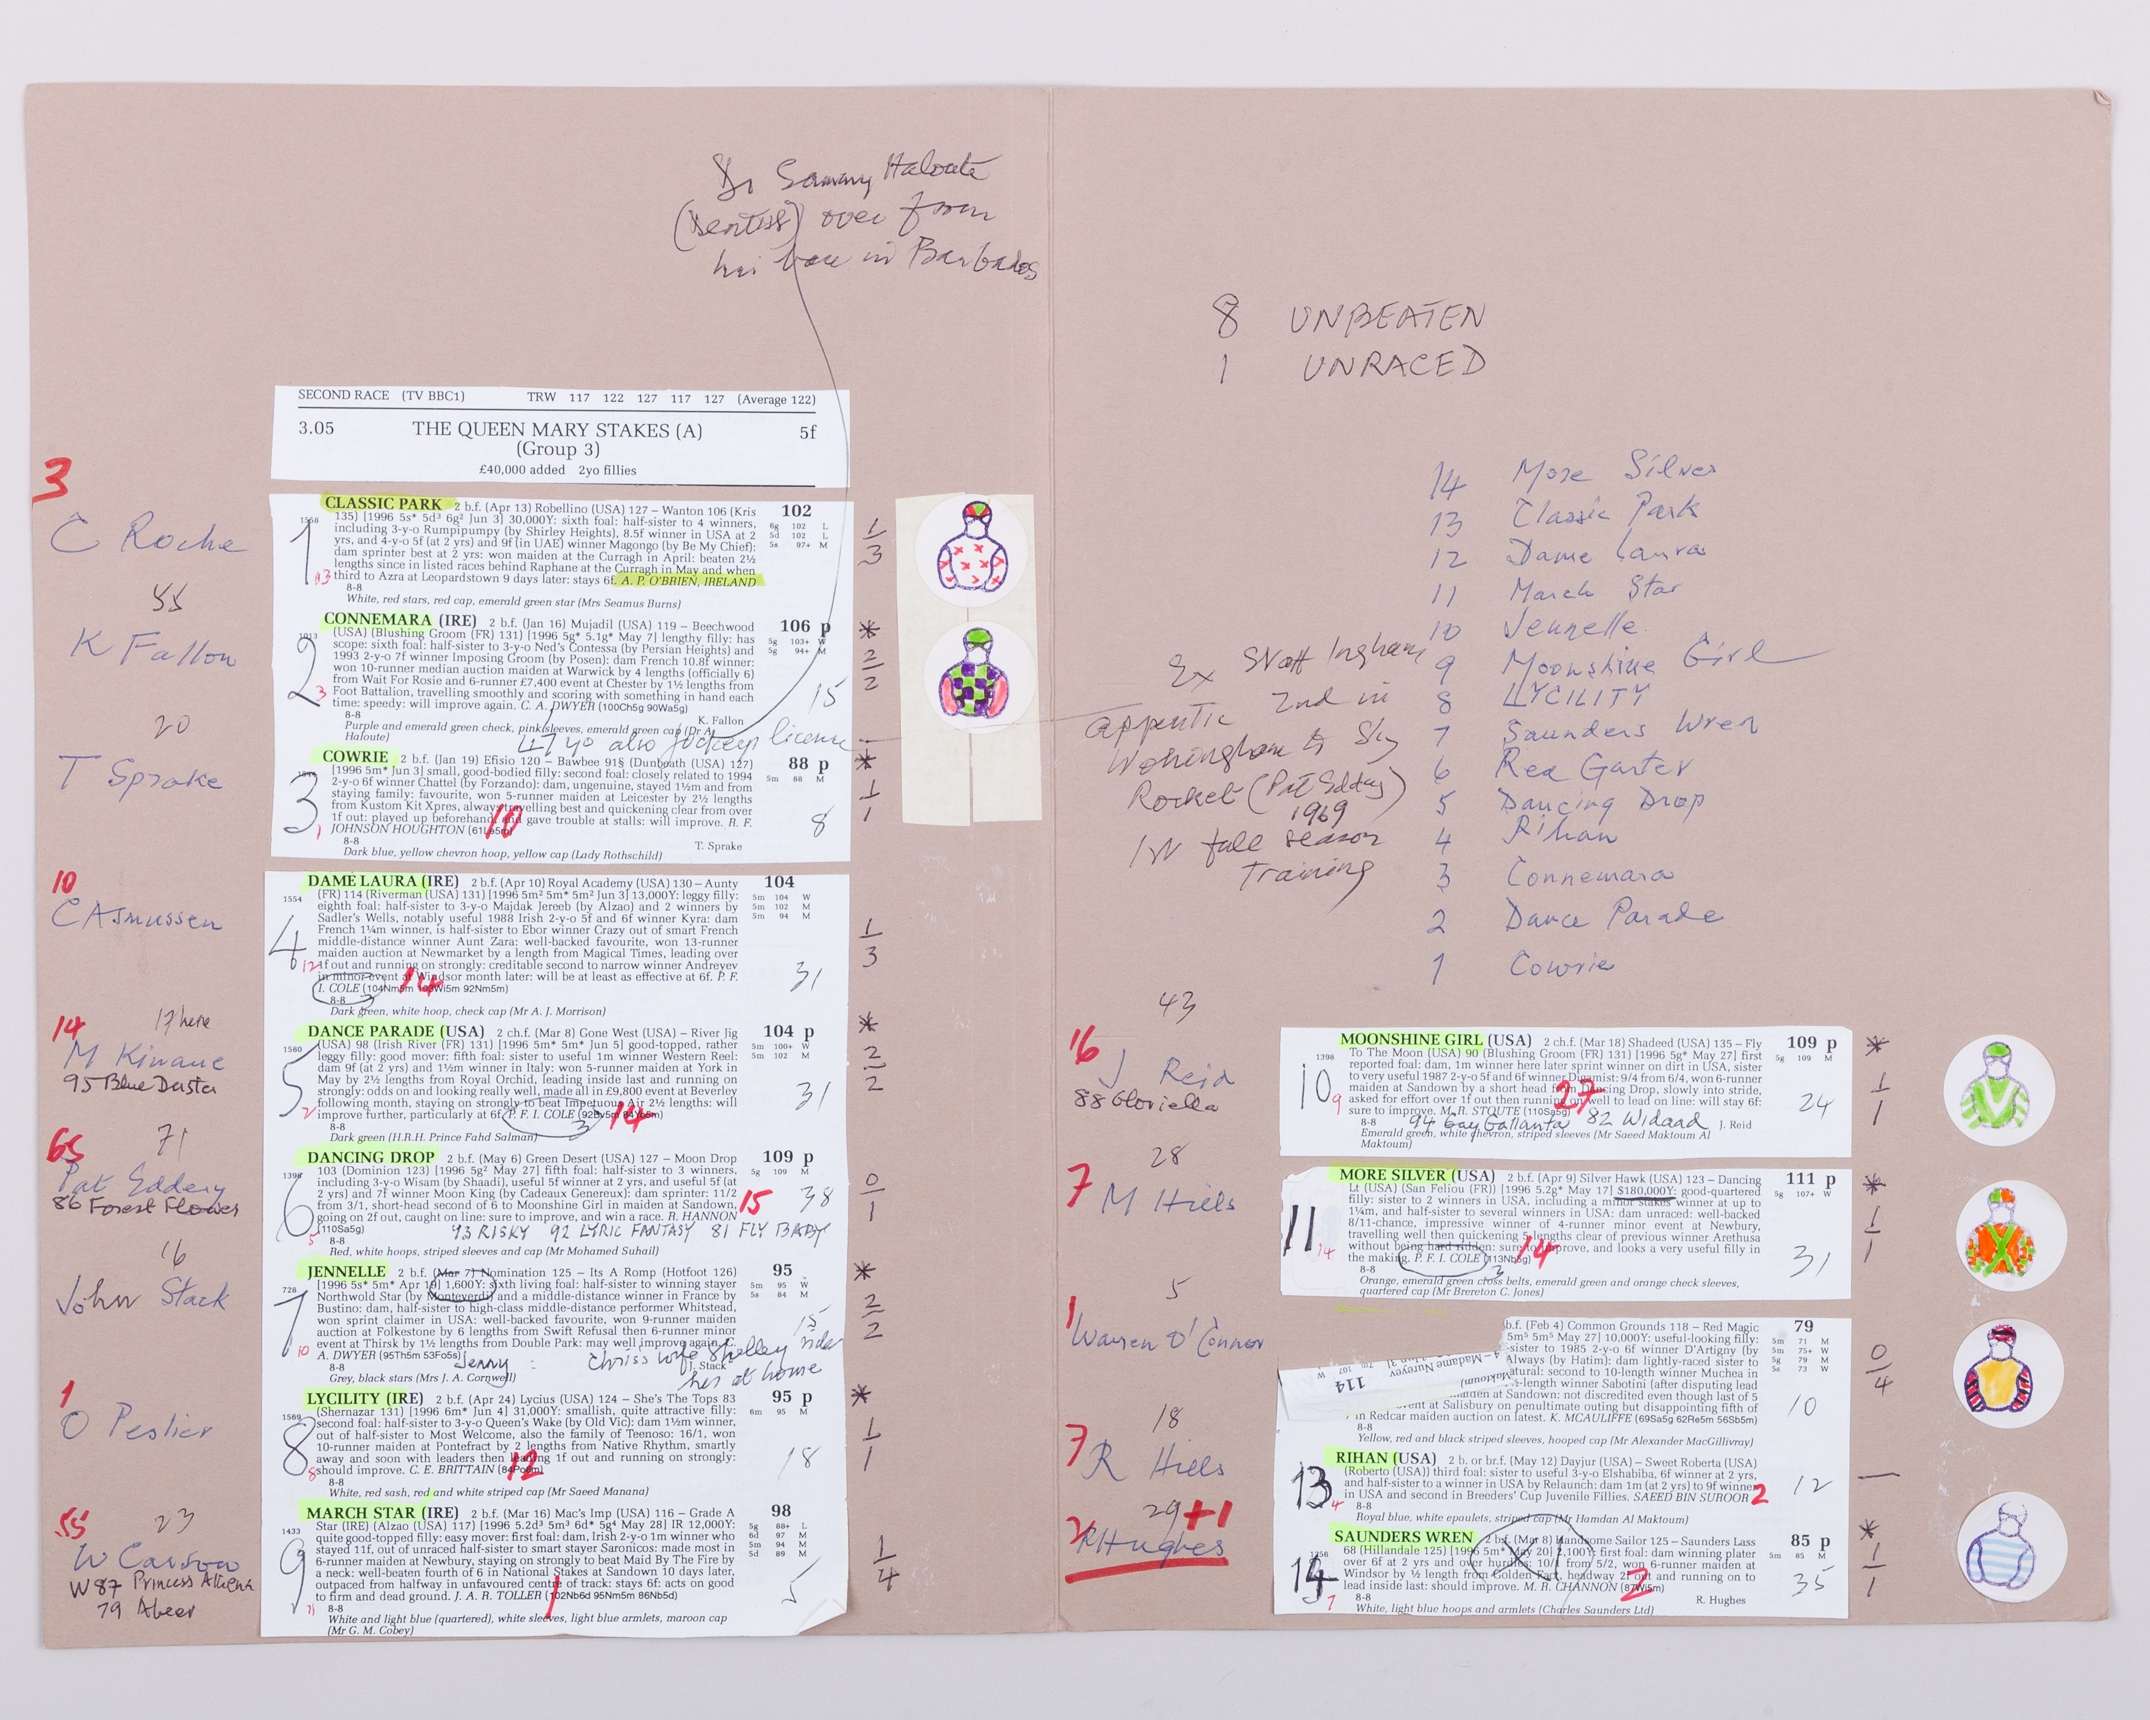 Dr Sammy Haloute
(dentist) over from
his base in Barbados
SECOND RACE (TV BBC1) TRW 117 122 127 117 127 (Average 122)
3.05 THE QUEEN MARY STAKES (A) 5f
(Group 3)
£40,000 added 2yo fillies
3
C Roche
55
K Fallon
20
T Sprake
10
C Asmussen
14 17 here
M Kinane
95 Blue Duster
65 71
Pat Eddery
86 Forest Flower
16
John Stack
1
O Peslier
55 23
W Carson
W 87 Princess Athena
79 Abeer
1
CLASSIC PARK 2 b.f. (Apr 13) Robellino (USA) 127 – Wanton 106 (Kris 102
1558 135) [1996 5s* 5d³ 6g² Jun 3] 30,000Y: sixth foal: half-sister to 4 winners,
including 3-y-o Rumpipumpy (by Shirley Heights), 8.5f winner in USA at 2 6g 102 L
yrs, and 4-y-o 5f (at 2 yrs) and 9f (in UAE) winner Magongo (by Be My Chief): 5d 102 L
dam sprinter best at 2 yrs: won maiden at the Curragh in April: beaten 2½ 5s 97+ M
lengths since in listed races behind Raphane at the Curragh in May and when
third to Azra at Leopardstown 9 days later: stays 6f. A. P. O'BRIEN, IRELAND
8-8
White, red stars, red cap, emerald green star (Mrs Seamus Burns)
13
1
3
2
CONNEMARA (IRE) 2 b.f. (Jan 16) Mujadil (USA) 119 – Beechwood 106 p
1013 (USA) (Blushing Groom (FR) 131) [1996 5g* 5.1g* May 7] lengthy filly: has 5g 103+ W
scope: sixth foal: half-sister to 3-y-o Ned's Contessa (by Persian Heights) and 5g 94+ M
1993 2-y-o 7f winner Imposing Groom (by Posen): dam French 10.8f winner:
won 10-runner median auction maiden at Warwick by 4 lengths (officially 6)
from Wait For Rosie and 6-runner £7,400 event at Chester by 1½ lengths from
Foot Battalion, travelling smoothly and scoring with something in hand each
time: speedy: will improve again. C. A. DWYER (100Ch5g 90Wa5g)
8-8 K. Fallon
Purple and emerald green check, pink sleeves, emerald green cap (Dr A.
Haloute)
47 yo also jockeys license
3
15
*
2
2
3
COWRIE 2 b.f. (Jan 19) Efisio 120 – Bawbee 91§ (Dunbeath (USA) 127) 88 p
[1996 5m* Jun 3] small, good-bodied filly: second foal: closely related to 1994 5m 88 M
2-y-o 6f winner Chattel (by Forzando): dam, ungenuine, stayed 1½m and from
staying family: favourite, won 5-runner maiden at Leicester by 2½ lengths
from Kustom Kit Xpres, always travelling best and quickening clear from over
1f out: played up beforehand, and gave trouble at stalls: will improve. R. F.
JOHNSON HOUGHTON (61Le5m)
8-8 T. Sprake
Dark blue, yellow chevron hoop, yellow cap (Lady Rothschild)
1
10
8
*
1
1
4
DAME LAURA (IRE) 2 b.f. (Apr 10) Royal Academy (USA) 130 – Aunty 104
1554 (FR) 114 (Riverman (USA) 131) [1996 5m² 5m* 5m² Jun 3] 13,000Y: leggy filly: 5m 104 W
eighth foal: half-sister to 3-y-o Majdak Jereeb (by Alzao) and 2 winners by 5m 102 M
Sadler's Wells, notably useful 1988 Irish 2-y-o 5f and 6f winner Kyra: dam 5m 94 M
French 1¼m winner, is half-sister to Ebor winner Crazy out of smart French
middle-distance winner Aunt Zara: well-backed favourite, won 13-runner
maiden auction at Newmarket by a length from Magical Times, leading over
1f out and running on strongly: creditable second to narrow winner Andreyev
in minor event at Windsor month later: will be at least as effective at 6f. P. F.
I. COLE (104Nm5m 103Wi5m 92Nm5m)
8-8
Dark green, white hoop, check cap (Mr A. J. Morrison)
12
14
3
31
1
3
5
DANCE PARADE (USA) 2 ch.f. (Mar 8) Gone West (USA) – River Jig 104 p
1560 (USA) 98 (Irish River (FR) 131) [1996 5m* 5m* Jun 5] good-topped, rather 5m 100+ W
leggy filly: good mover: fifth foal: sister to useful 1m winner Western Reel: 5m 102 M
dam 9f (at 2 yrs) and 1½m winner in Italy: won 5-runner maiden at York in
May by 2½ lengths from Royal Orchid, leading inside last and running on
strongly: odds on and looking really well, made all in £9,800 event at Beverley
following month, staying on strongly to beat Impetuous Air 2½ lengths: will
improve further, particularly at 6f. P. F. I. COLE (92By5m 84Yo5m)
8-8
Dark green (H.R.H. Prince Fahd Salman)
2
3
14
31
*
2
2
6
DANCING DROP 2 b.f. (May 6) Green Desert (USA) 127 – Moon Drop 109 p
1398 103 (Dominion 123) [1996 5g² May 27] fifth foal: half-sister to 3 winners, 5g 109 M
including 3-y-o Wisam (by Shaadi), useful 5f winner at 2 yrs, and useful 5f (at
2 yrs) and 7f winner Moon King (by Cadeaux Genereux): dam sprinter: 11/2
from 3/1, short-head second of 6 to Moonshine Girl in maiden at Sandown,
going on 2f out, caught on line: sure to improve, and win a race. R. HANNON
(110Sa5g)
93 RISKY 92 LYRIC FANTASY 81 FLY BABY
8-8
Red, white hoops, striped sleeves and cap (Mr Mohamed Suhail)
5
15
38
0
1
7
JENNELLE 2 b.f. (Mar 7) Nomination 125 – Its A Romp (Hotfoot 126) 95
728 [1996 5s* 5m* Apr 19] 1,600Y: sixth living foal: half-sister to winning stayer 5m 95 W
Northwold Star (by Monteverdi) and a middle-distance winner in France by 5s 84 M
Bustino: dam, half-sister to high-class middle-distance performer Whitstead,
won sprint claimer in USA: well-backed favourite, won 9-runner maiden
auction at Folkestone by 6 lengths from Swift Refusal then 6-runner minor
event at Thirsk by 1½ lengths from Double Park: may well improve again. C.
A. DWYER (95Th5m 53Fo5s)
8-8 J. Stack
Grey, black stars (Mrs J. A. Cornwell)
Jenny : Chriss wife Shelley rides
her at home
10
15
*
2
2
8
LYCILITY (IRE) 2 b.f. (Apr 24) Lycius (USA) 124 – She's The Tops 83 95 p
1589 (Shernazar 131) [1996 6m* Jun 4] 31,000Y: smallish, quite attractive filly: 6m 95 M
second foal: half-sister to 3-y-o Queen's Wake (by Old Vic): dam 1½m winner,
out of half-sister to Most Welcome, also the family of Teenoso: 16/1, won
10-runner maiden at Pontefract by 2 lengths from Native Rhythm, smartly
away and soon with leaders then leading 1f out and running on strongly:
should improve. C. E. BRITTAIN (84Po6m)
8-8
White, red sash, red and white striped cap (Mr Saeed Manana)
8
12
18
*
1
1
9
MARCH STAR (IRE) 2 b.f. (Mar 16) Mac's Imp (USA) 116 – Grade A 98
1433 Star (IRE) (Alzao (USA) 117) [1996 5.2d³ 5m³ 6d* 5g⁴ May 28] IR 12,000Y: 5g 88+ L
quite good-topped filly: easy mover: first foal: dam, Irish 2-y-o 1m winner who 6d 97 M
stayed 11f, out of unraced half-sister to smart stayer Saronicos: made most in 5m 94 M
6-runner maiden at Newbury, staying on strongly to beat Maid By The Fire by 5d 89 M
a neck: well-beaten fourth of 6 in National Stakes at Sandown 10 days later,
outpaced from halfway in unfavoured centre of track: stays 6f: acts on good
to firm and dead ground. J. A. R. TOLLER (102Nb6d 95Nm5m 86Nb5d)
8-8
White and light blue (quartered), white sleeves, light blue armlets, maroon cap
(Mr G. M. Cobey)
11
1
5
1
4
8 UNBEATEN
1 UNRACED
14 More Silver
13 Classic Park
12 Dame Laura
11 March Star
10 Jennelle
9 Moonshine Girl
8 LYCILITY
7 Saunders Wren
6 Red Garter
5 Dancing Drop
4 Rihan
3 Connemara
2 Dance Parade
1 Cowrie
Ex Staff Ingham
appentic 2nd in
Wokingham to Sky
Rocket (Pat Eddery)
1969
1st full season
Training
43
16
J Reid
88 Gloriella
28
7
M Hills
5
1
Warren O'Connor
18
7
R Hills
29 +1
2
R Hughes
10
MOONSHINE GIRL (USA) 2 ch.f. (Mar 18) Shadeed (USA) 135 – Fly 109 p
1398 To The Moon (USA) 90 (Blushing Groom (FR) 131) [1996 5g* May 27] first 5g 109 M
reported foal: dam, 1m winner here later sprint winner on dirt in USA, sister
to very useful 1987 2-y-o 5f and 6f winner Digamist: 9/4 from 6/4, won 6-runner
maiden at Sandown by a short head from Dancing Drop, slowly into stride,
asked for effort over 1f out then running on well to lead on line: will stay 6f:
sure to improve. M. R. STOUTE (110Sa5g)
8-8 94 Gay Gallanta 82 Widaad J. Reid
Emerald green, white chevron, striped sleeves (Mr Saeed Maktoum Al
Maktoum)
9
27
24
*
1
1
11
MORE SILVER (USA) 2 b.f. (Apr 9) Silver Hawk (USA) 123 – Dancing 111 p
Lt (USA) (San Feliou (FR)) [1996 5.2g* May 17] $180,000Y: good-quartered 5g 107+ W
filly: sister to 2 winners in USA, including a minor stakes winner at up to
1¼m, and half-sister to several winners in USA: dam unraced: well-backed
8/11-chance, impressive winner of 4-runner minor event at Newbury,
travelling well then quickening 5 lengths clear of previous winner Arethusa
without being hard ridden: sure to improve, and looks a very useful filly in
the making. P. F. I. COLE (113Nb5g)
8-8
Orange, emerald green cross belts, emerald green and orange check sleeves,
quartered cap (Mr Brereton C. Jones)
14
14
3
31
*
1
1
b.f. (Feb 4) Common Grounds 118 – Red Magic 79
5m⁵ 5m⁵ May 27] 10,000Y: useful-looking filly: 5m 71 M
sister to 1985 2-y-o 6f winner D'Artigny (by 5m 75+ W
Always (by Hatim): dam lightly-raced sister to 5g 79 M
atural: second to 10-length winner Muchea in 5s 73 W
length winner Sabotini (after disputing lead
maiden at Sandown: not discredited even though last of 5
event at Salisbury on penultimate outing but disappointing fifth of
7 in Redcar maiden auction on latest. K. MCAULIFFE (69Sa5g 62Re5m 56Sb5m)
8-8
Yellow, red and black striped sleeves, hooped cap (Mr Alexander MacGillivray)
– Madame Nureyev
Maktoum)
114
10
0
4
13
RIHAN (USA) 2 b. or br.f. (May 12) Dayjur (USA) – Sweet Roberta (USA)
(Roberto (USA)) third foal: sister to useful 3-y-o Elshabiba, 6f winner at 2 yrs,
and half-sister to a winner in USA by Relaunch: dam 1m (at 2 yrs) to 9f winner
in USA and second in Breeders' Cup Juvenile Fillies. SAEED BIN SUROOR
8-8
Royal blue, white epaulets, striped cap (Mr Hamdan Al Maktoum)
4
2
12
14
SAUNDERS WREN 2 b.f. (Mar 8) Handsome Sailor 125 – Saunders Lass 85 p
1256 68 (Hillandale 125) [1996 5m* May 20] 2,100Y: first foal: dam winning plater 5m 85 M
over 6f at 2 yrs and over hurdles: 10/1 from 5/2, won 6-runner maiden at
Windsor by ½ length from Golden Fact, headway 2f out and running on to
lead inside last: should improve. M. R. CHANNON (87Wi5m)
8-8 R. Hughes
White, light blue hoops and armlets (Charles Saunders Ltd)
7
2
35
*
1
1